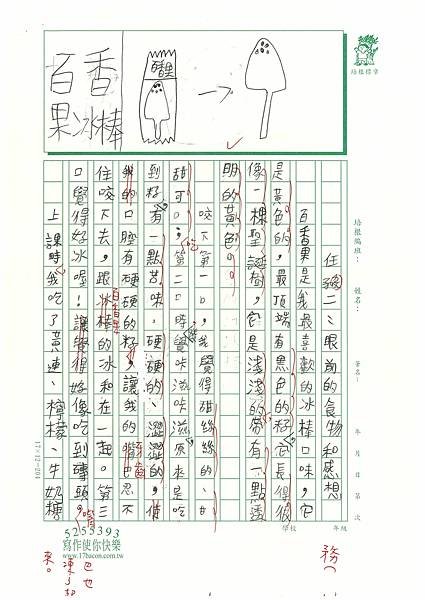 百香
果冰棒
百香果
培根標章
任務二：眼前的食物和感想
百香果是我最喜歡的冰棒口味，它
是黃色的，最頂端有黑色的籽，長得很
像一棵聖誕樹，它是淺淺的帶有一點透
明的黃色。
咬下第一口，我覺得甜絲絲的、甘
甜可口；吃第二口時覺得咔滋咔滋原來是吃
到籽，有一點苦味，硬硬的、澀澀的，使
我的口腔有硬硬的籽，讓我的嘴巴忍不
住咬下去，跟冰棒的冰和在一起。第三
口覺得好冰喔！讓我覺得好像吃到磚頭。
上課時，我吃了黃連、檸檬、牛奶糖
百香果
牙齒
嘴
巴也
凍了起
來。
務
培根編班：
姓名：
筆名：
年 月 日 第 次
學校
年級
17×12=204
5255393
寫作使你快樂
www.17bacon.com.tw